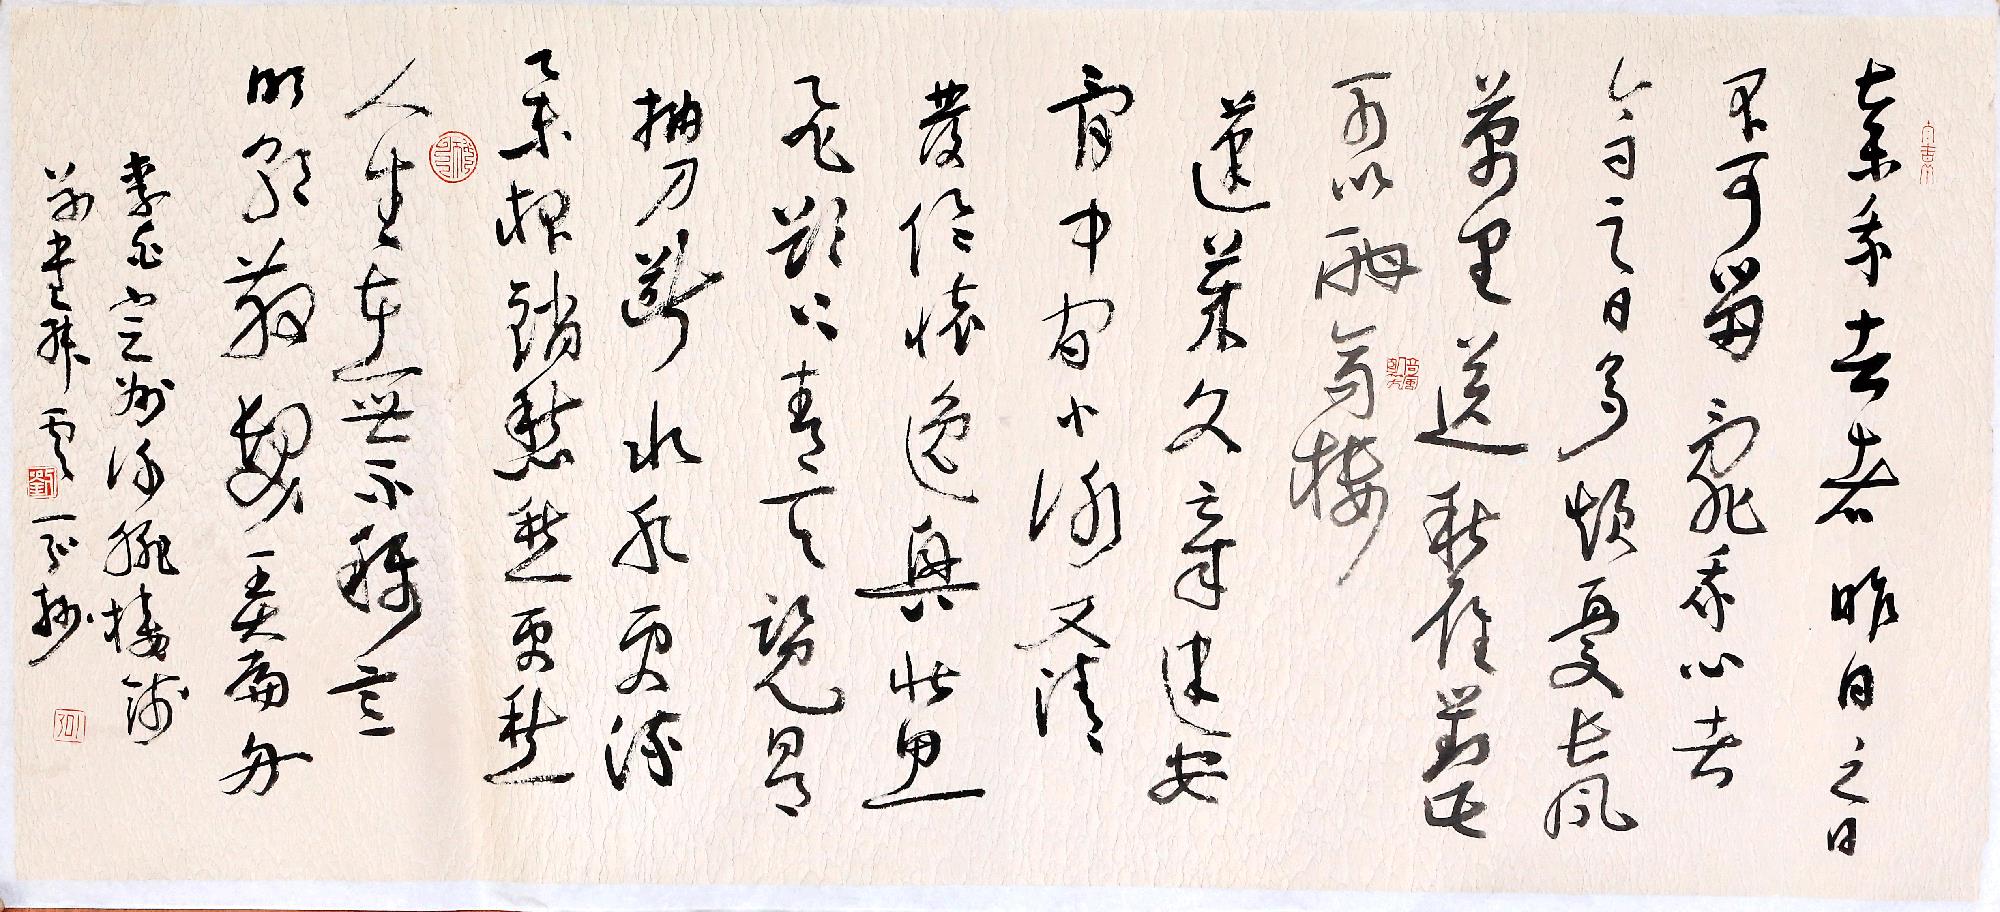 棄我去者昨日之日
不可留亂我心者
今日之日多煩憂長風
萬里送秋雁對此
可以酣高樓
蓬萊文章建安
骨中間小謝又清
發俱懷逸興壯思
飛欲上青天覽日月
抽刀斷水水更流
舉杯銷愁愁更愁
人生在世不稱意
明朝散髮弄扁舟
李白宣州谢朓樓餞
別書叔雲 一弘抄
劉